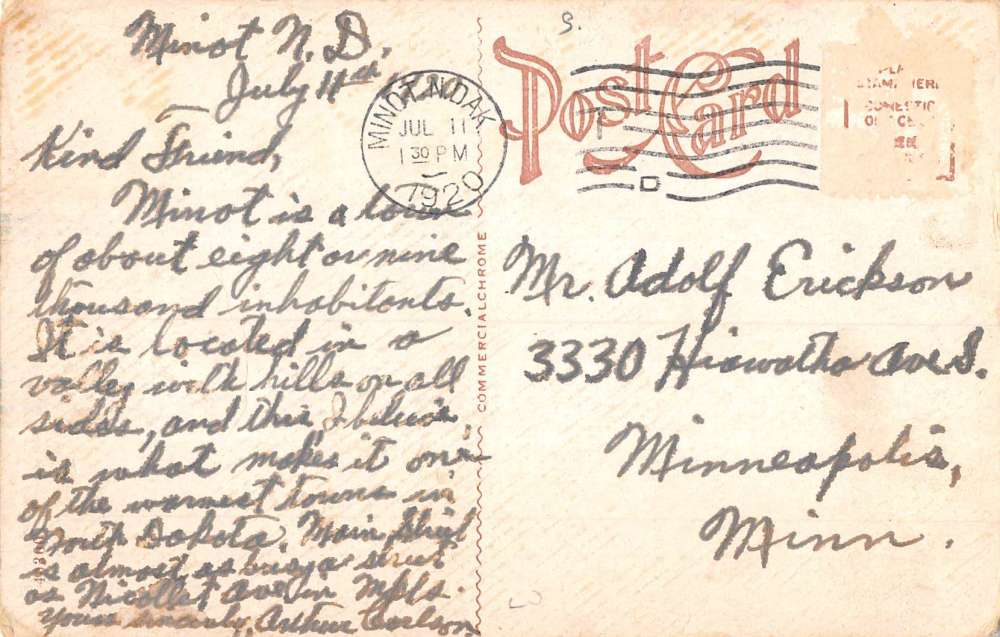 S.
Minot N. D.
July 11th
Kind Friend,
Minot is a town
of about eight or nine
thousand inhabitants.
It is located in a
valley with hills on all
sides, and this I believe,
is what makes it one
of the warmest towns in
North Dakota. Main Street
is almost as busy a street
as Nicollet Ave in Mpls.
Yours sincerely, Arthur Carlson
MINOT, N. DAK.
JUL 11
1 30 PM
1920
Post Card
D
COMMERCIALCHROME
Mr. Adolf Erickson
3330 Hiawatha Ave S.
Minneapolis,
Minn.